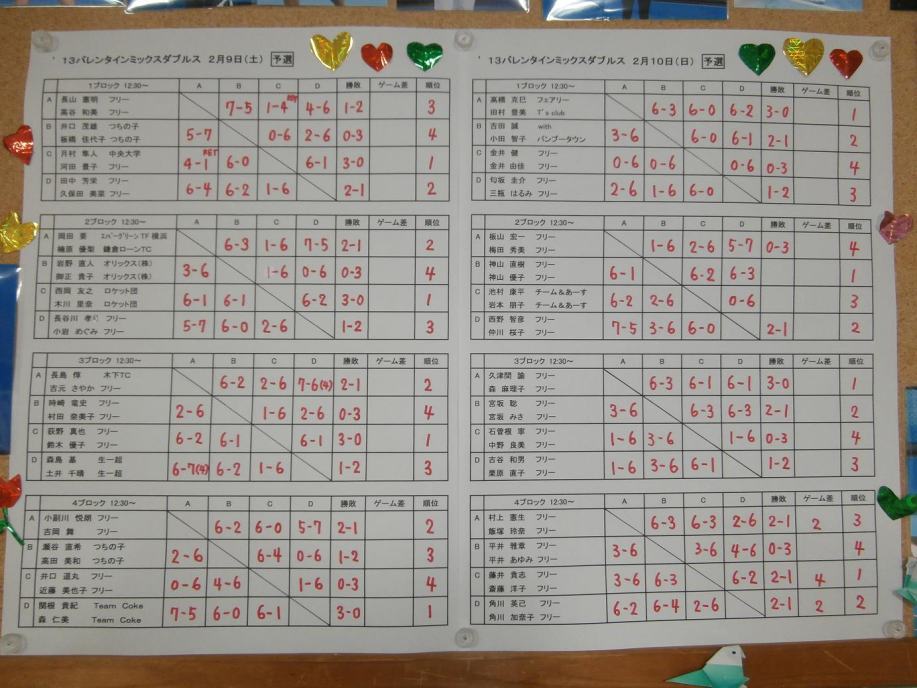 '13バレンタインミックスダブルス 2月9日(土) 予選
1ブロック 12:30～ A B C D 勝敗 ゲーム差 順位
A 長山 憲明 フリー
高谷 和美 フリー 7-5 1-4 4-6 1-2 3
B 井口 茂雄 つちの子
板橋 佳代子 つちの子 5-7 0-6 2-6 0-3 4
C 月村 隼人 中央大学
河田 景子 フリー 4-1 RET 6-0 6-1 3-0 1
D 田中 芳栄 フリー
久保田 美菜 フリー 6-4 6-2 1-6 2-1 2
2ブロック 12:30～ A B C D 勝敗 ゲーム差 順位
A 岡田 要 エバーグリーンTF横浜
楠原 優梨 鎌倉ローンTC 6-3 1-6 7-5 2-1 2
B 岩野 直人 オリックス(株)
御正 貴子 オリックス(株) 3-6 1-6 0-6 0-3 4
C 西岡 友之 ロケット団
木川 里奈 ロケット団 6-1 6-1 6-2 3-0 1
D 長谷川 フリー
小岩 めぐみ フリー 5-7 6-0 2-6 1-2 3
3ブロック 12:30～ A B C D 勝敗 ゲーム差 順位
A 長島 惇 木下TC
吉元 さやか フリー 6-2 2-6 7-6(4) 2-1 2
B 時崎 竜史 フリー
村田 奈美子 フリー 2-6 1-6 2-6 0-3 4
C 荻野 真也 フリー
鈴木 優子 フリー 6-2 6-1 6-1 3-0 1
D 森島 基 生一超
土井 千晴 生一超 6-7(4) 6-2 1-6 1-2 3
4ブロック 12:30～ A B C D 勝敗 ゲーム差 順位
A 小副川 悦朗 フリー
吉岡 舞 フリー 6-2 6-0 5-7 2-1 2
B 瀬谷 直希 つちの子
高田 美和 つちの子 2-6 6-4 0-6 1-2 3
C 井口 道丸 フリー
近藤 美也子 フリー 0-6 4-6 1-6 0-3 4
D 関根 貴紀 Team Coke
森 仁美 Team Coke 7-5 6-0 6-1 3-0 1
'13バレンタインミックスダブルス 2月10日(日) 予選
1ブロック 12:30～ A B C D 勝敗 ゲーム差 順位
A 高橋 克巳 フェアリー
田村 登美 T's club 6-3 6-0 6-2 3-0 1
B 吉田 誠 with
小田 智子 バンブータウン 3-6 6-0 6-1 2-1 2
C 金井 健 フリー
金井 由佳 フリー 0-6 0-6 0-6 0-3 4
D 匂坂 圭介 フリー
三瓶 はるみ フリー 2-6 1-6 6-0 1-2 3
2ブロック 12:30～ A B C D 勝敗 ゲーム差 順位
A 板山 宏一 フリー
梅田 秀美 フリー 1-6 2-6 5-7 0-3 4
B 神山 直樹 フリー
神山 優子 フリー 6-1 6-2 6-3 1
C 池村 康平 チーム＆あーす
岩本 朋子 チーム＆あーす 6-2 2-6 0-6 3
D 西野 智彦 フリー
仲川 桜子 フリー 7-5 3-6 6-0 2-1 2
3ブロック 12:30～ A B C D 勝敗 ゲーム差 順位
A 久津間 諭 フリー
森 麻理子 フリー 6-3 6-1 6-1 3-0 1
B 宮坂 聡 フリー
宮坂 みさ フリー 3-6 6-3 6-3 2-1 2
C 石曽根 寧 フリー
中野 良美 フリー 1-6 3-6 1-6 0-3 4
D 古谷 和男 フリー
栗原 直子 フリー 1-6 3-6 6-1 1-2 3
4ブロック 12:30～ A B C D 勝敗 ゲーム差 順位
A 村上 憲生 フリー
飯塚 玲奈 フリー 6-3 6-3 2-6 2-1 2 3
B 平井 雅章 フリー
平井 あゆみ フリー 3-6 3-6 4-6 0-3 4
C 藤井 貴志 フリー
斎藤 洋子 フリー 3-6 6-3 6-2 2-1 4 1
D 角川 英己 フリー
角川 加奈子 フリー 6-2 6-4 2-6 2-1 2 2